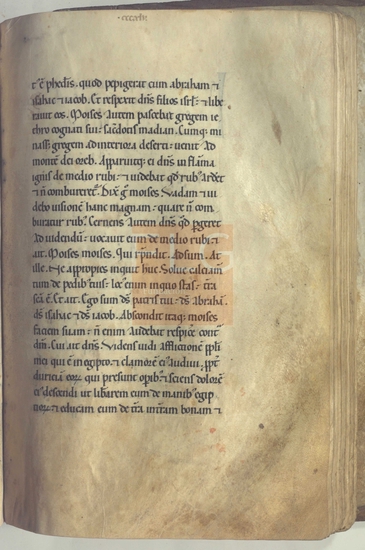 t᷑ ē phed͛is. quod pepigerat cum abraham ⁊
isahac ⁊ iacob. Et respexit dn̄s filios isrl̄. ⁊ libe
rauit eos. Moises autem pascebat gregem ie
thro cognati sui. sac͛dotis madian. Cumq; mi
nass& gregem ad interiora deserti. uenit ad
montē dei oreb. Apparuitq; ei dn̄s in flāma
ignis de medio rubi. ⁊ uidebat qd rub᷒ ard&
⁊ n̄ combureret᷑. Dix̄ g̊ moises. Vadam ⁊ ui
debo uisionē hanc magnam. quare n̄ com
buratur rub᷒. Cernens autem dn̄s qd̄ p͛geret
ad uidendū. uocauit eum de medio rubi. ⁊
ait. Moises moises. Qui rn̄dit. Adsum. At
ille. Ne appropies inquit huc. Solue calciam̄
tum de pedib᷒ tuis. loc᷒ enim in quo stas. t͛ra
sc̄a ē. Et ait. Ego sum ds̄ patris tui. ds̄ abrahā.
ds̄ isahac ⁊ ds̄ iacob. Abscondit itaq; moises
faciem suam. n̄ enim audebat respic͛e cont͛
dm̄. Cui ait dn̄s. Videns uidi afflictionē pp̄li
mei qui ē in egipto. ⁊ clamorē ei᷒ audiui. ꝓpt͛
duriciā eoꝝ qui presunt op͛ib᷒. ⁊ sciens dolorē
ei᷒ descendi ut lib͛arem eum de manib᷒ egip
tioꝝ. ⁊ educam eum de t͛ra in t͛ram bonam ⁊